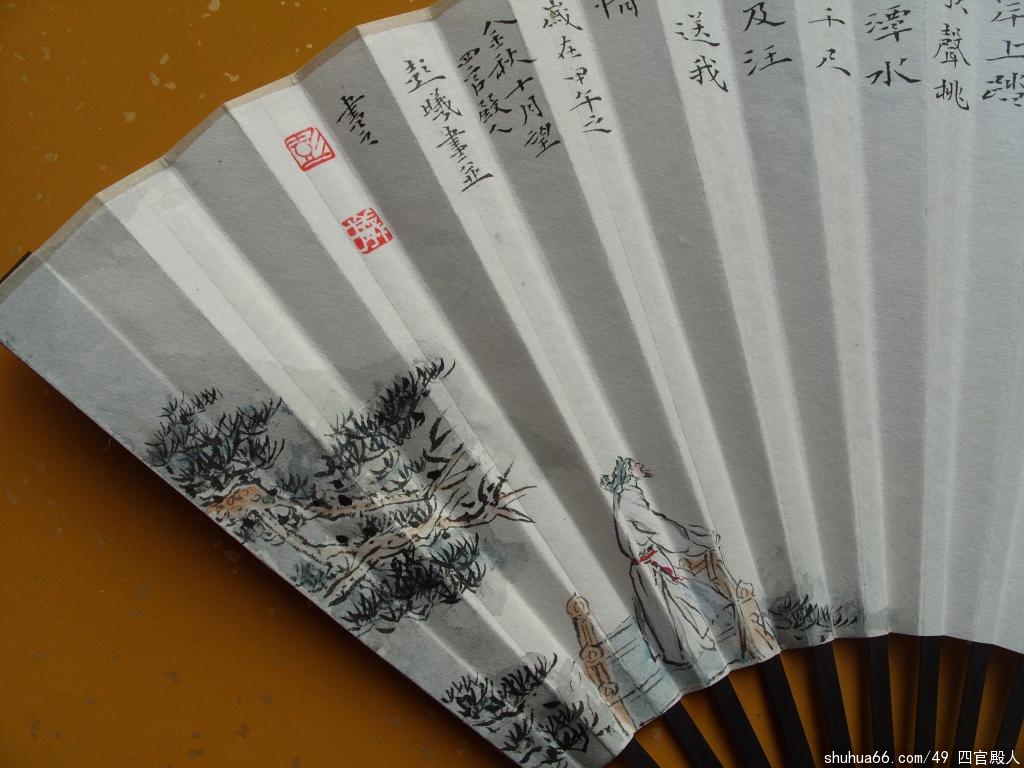 岸上踏
聲桃
潭水
千尺
及汪
送我
情
歲在甲午之
金秋十月望
四官殿人
彭曦書並
畫之
shuhua66.com/49 四官殿人